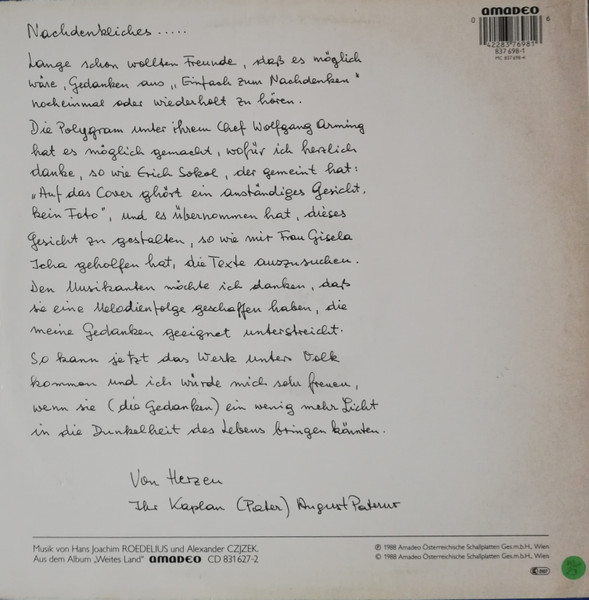 amadeo
0 42283 76981 6
837 698-1
MC 837 698-4
Nachdenkliches .....
Lange schon wollten Freunde, daß es möglich
wäre, Gedanken aus „Einfach zum Nachdenken"
nocheinmal oder wiederholt zu hören.
Die Polygram unter ihrem Chef Wolfgang Arming
hat es möglich gemacht, wofür ich herzlich
danke, so wie Erich Sokol, der gemeint hat:
„Auf das Cover ghört ein anständiges Gesicht,
kein Foto", und es übernommen hat, dieses
Gesicht zu gestalten, so wie mir Frau Gisela
Icha geholfen hat, die Texte auszusuchen.
Den Musikanten möchte ich danken, daß
sie eine Melodienfolge geschaffen haben, die
meine Gedanken geeignet unterstreicht.
So kann jetzt das Werk unter Volk
kommen und ich würde mich sehr freuen,
wenn sie (die Gedanken) ein wenig mehr Licht
in die Dunkelheit des Lebens bringen könnten.
Von Herzen
Ihr Kaplan (Pater) August Paterno
Musik von Hans Joachim ROEDELIUS und Alexander CZJZEK.
Aus dem Album „Weites Land" amadeo CD 831 627-2
℗ 1988 Amadeo Österreichische Schallplatten Ges.m.b.H., Wien
© 1988 Amadeo Österreichische Schallplatten Ges.m.b.H., Wien